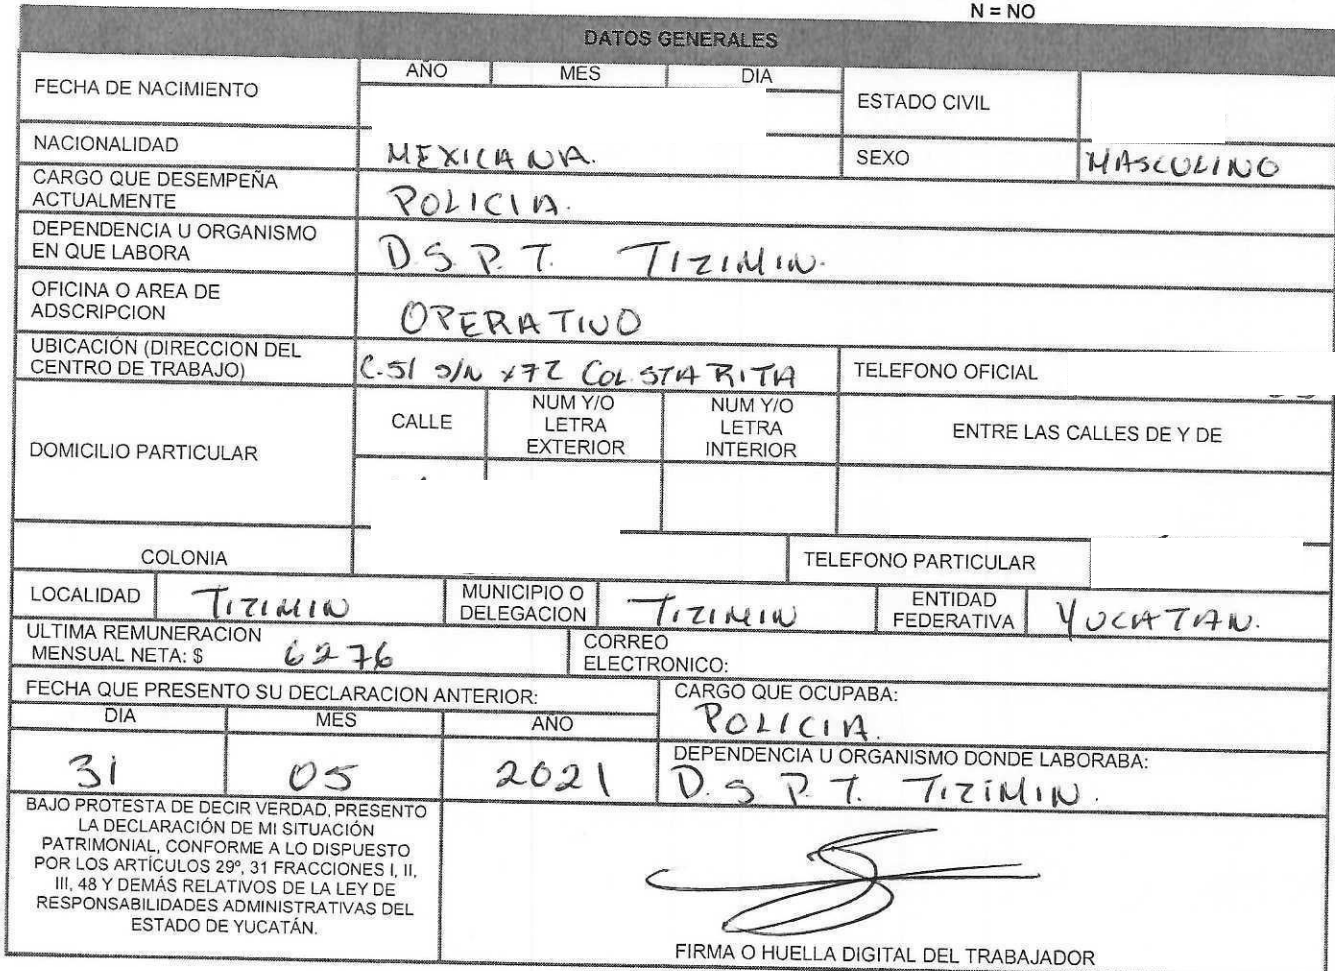 N = NO
DATOS GENERALES
FECHA DE NACIMIENTO
AÑO MES DIA
ESTADO CIVIL
NACIONALIDAD MEXICANA. SEXO MASCULINO
CARGO QUE DESEMPEÑA
ACTUALMENTE
POLICIA.
DEPENDENCIA U ORGANISMO
EN QUE LABORA
D.S.P.T. TIZIMIN.
OFICINA O AREA DE
ADSCRIPCION
OPERATIVO
UBICACIÓN (DIRECCION DEL
CENTRO DE TRABAJO)
C.51 S/N x72 COL STA RITA
TELEFONO OFICIAL
DOMICILIO PARTICULAR
CALLE
NUM Y/O
LETRA
EXTERIOR
NUM Y/O
LETRA
INTERIOR
ENTRE LAS CALLES DE Y DE
COLONIA
TELEFONO PARTICULAR
LOCALIDAD TIZIMIN
MUNICIPIO O
DELEGACION
TIZIMIN
ENTIDAD
FEDERATIVA
YUCATAN.
ULTIMA REMUNERACION
MENSUAL NETA: $ 6276
CORREO
ELECTRONICO:
FECHA QUE PRESENTO SU DECLARACION ANTERIOR:
DIA MES AÑO
31 05 2021
CARGO QUE OCUPABA:
POLICIA.
DEPENDENCIA U ORGANISMO DONDE LABORABA:
D.S.P.T. TIZIMIN.
BAJO PROTESTA DE DECIR VERDAD, PRESENTO
LA DECLARACIÓN DE MI SITUACIÓN
PATRIMONIAL, CONFORME A LO DISPUESTO
POR LOS ARTÍCULOS 29º, 31 FRACCIONES I, II,
III, 48 Y DEMÁS RELATIVOS DE LA LEY DE
RESPONSABILIDADES ADMINISTRATIVAS DEL
ESTADO DE YUCATÁN.
FIRMA O HUELLA DIGITAL DEL TRABAJADOR